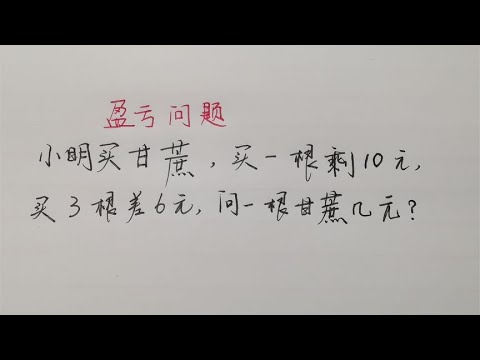 盈亏问题
小明买甘蔗，买一根剩10元，
买3根差6元，问一根甘蔗几元？